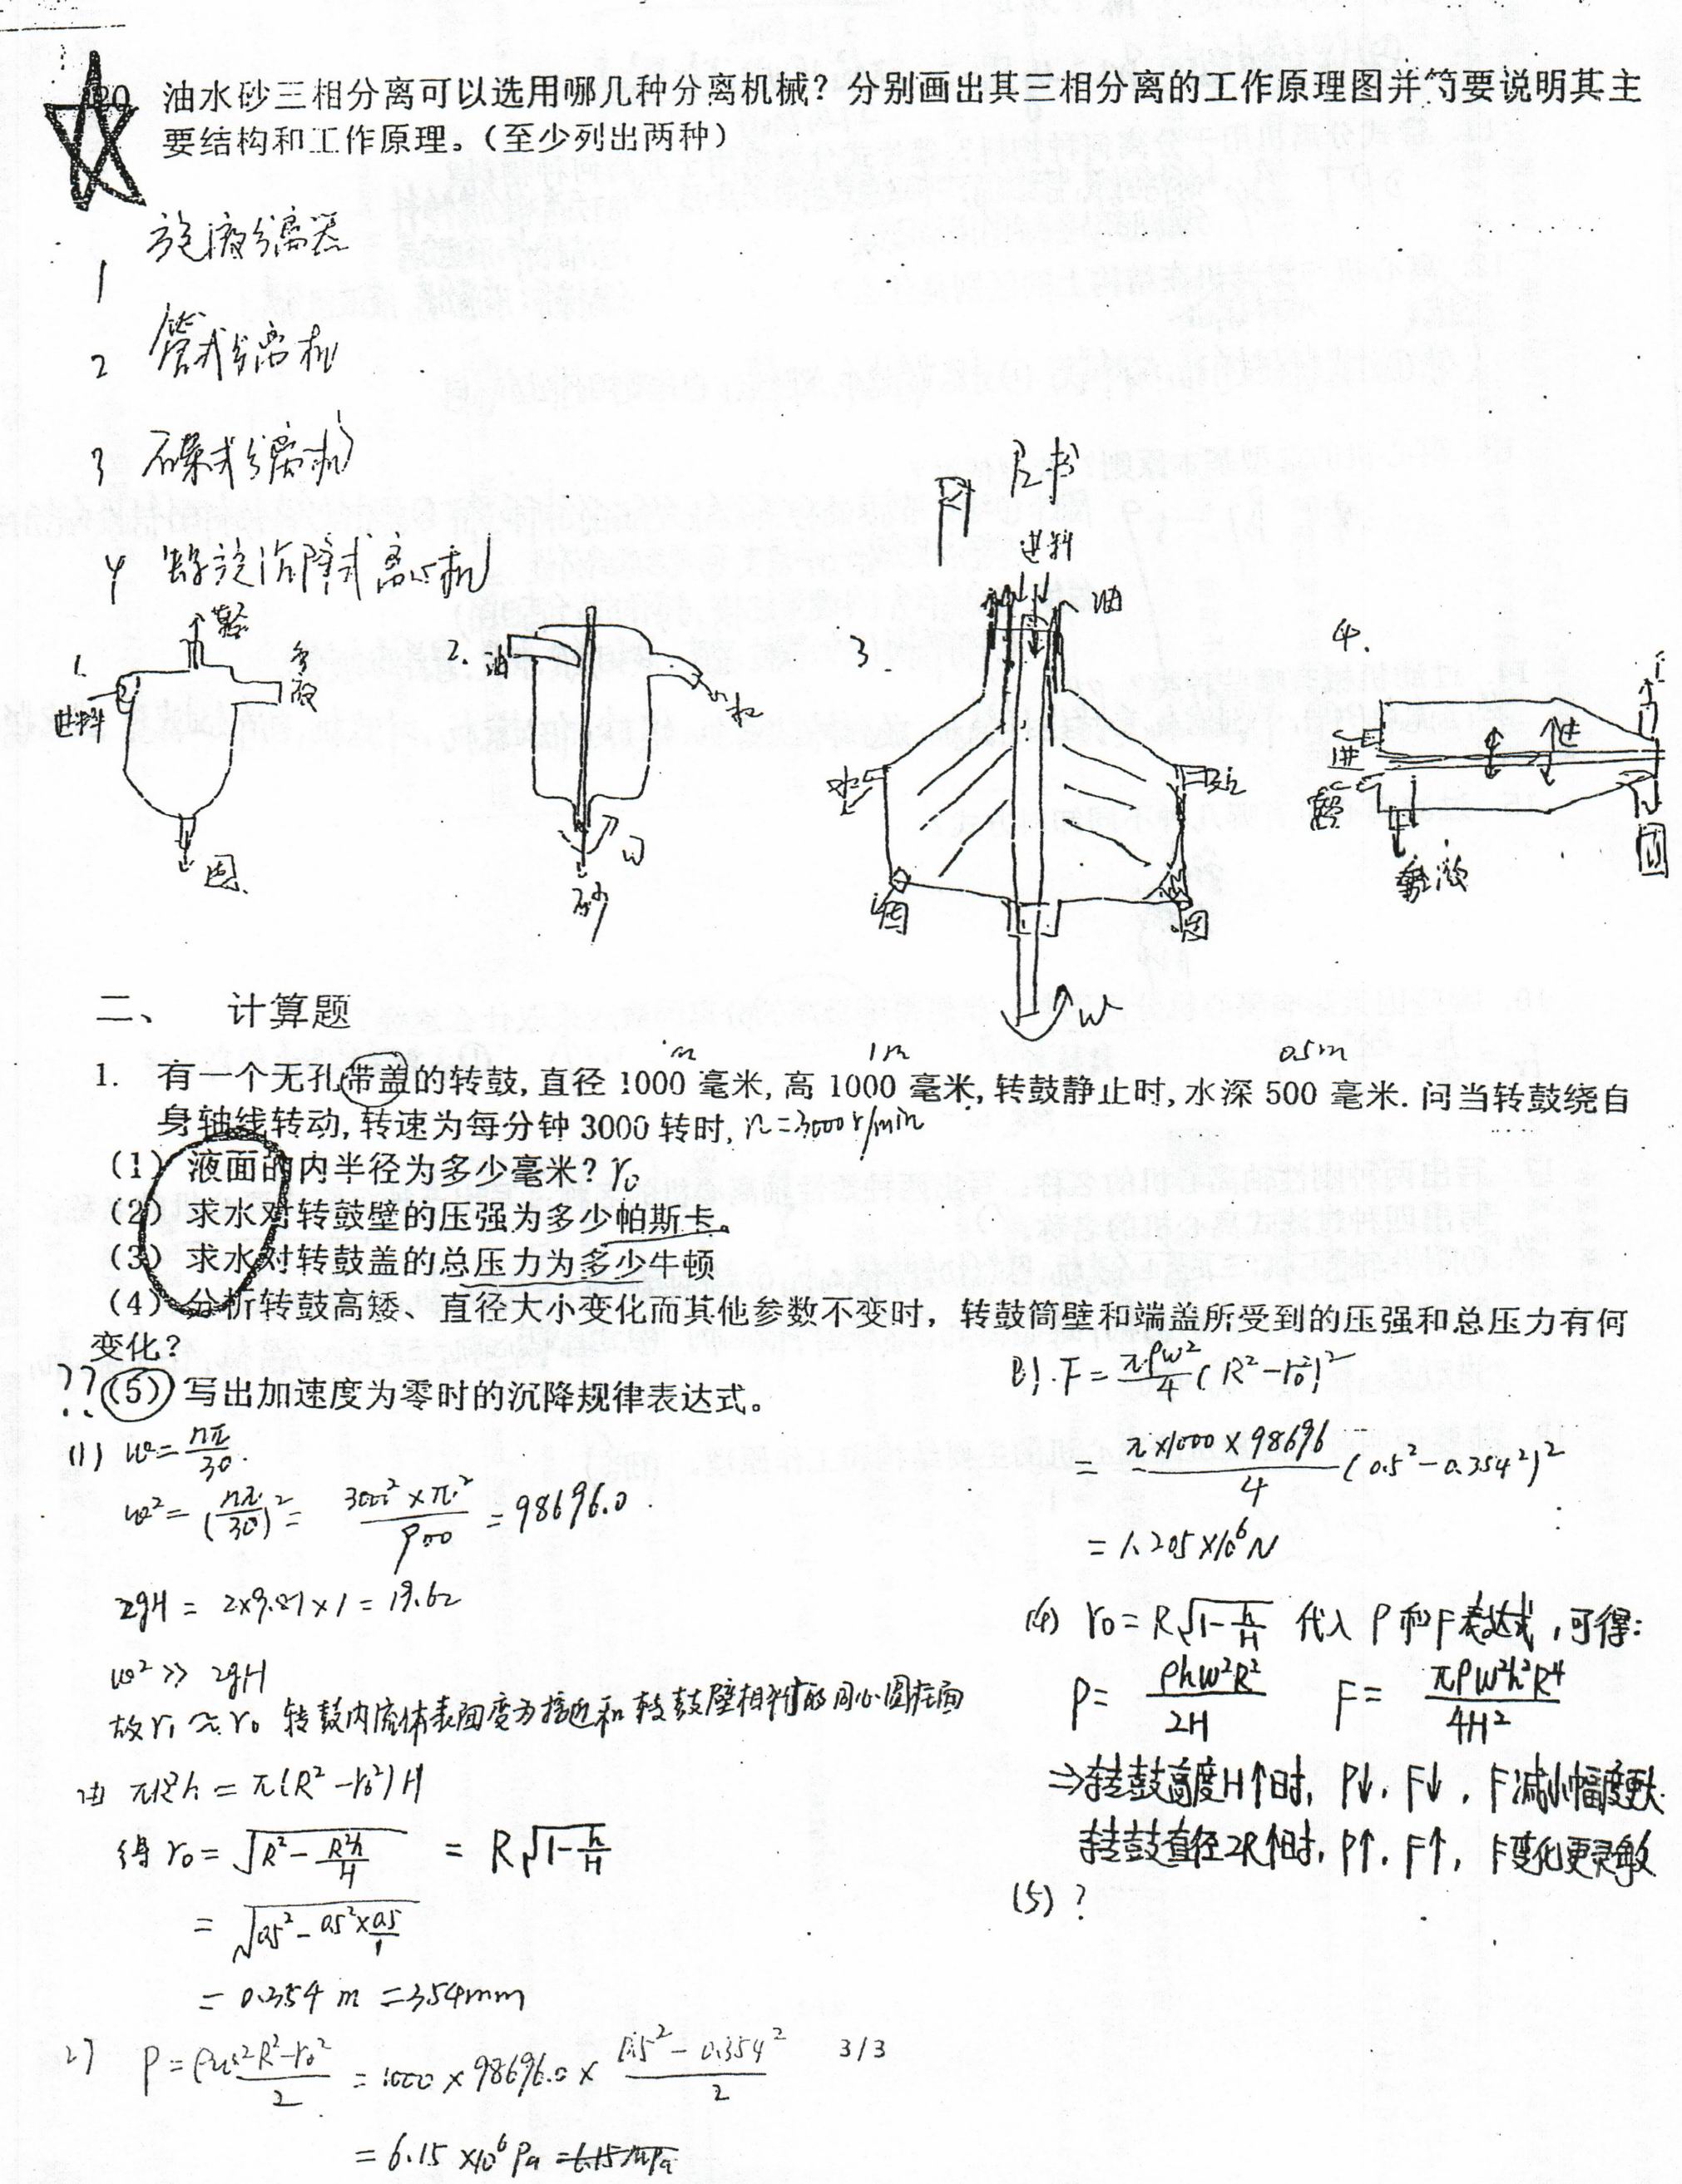 20 油水砂三相分离可以选用哪几种分离机械？分别画出其三相分离的工作原理图并简要说明其主
要结构和工作原理。（至少列出两种）
1 旋液分离器
2 管式分离机
3 碟式分离机
4 螺旋沉降式离心机
尺书
1.
轻
进料
多液
固
2.
油
水
ω
砂
3.
进料
油
水
固
固
ω
4.
进
进
重液
固
二、 计算题
m 1m 0.5m
1. 有一个无孔带盖的转鼓,直径 1000 毫米,高 1000 毫米,转鼓静止时,水深 500 毫米. 问当转鼓绕自
身轴线转动,转速为每分钟 3000 转时, n=3000r/min
(1) 液面的内半径为多少毫米？r₀
(2) 求水对转鼓壁的压强为多少帕斯卡。
(3) 求水对转鼓盖的总压力为多少牛顿
(4) 分析转鼓高矮、直径大小变化而其他参数不变时，转鼓筒壁和端盖所受到的压强和总压力有何
变化？
?? (5) 写出加速度为零时的沉降规律表达式。
(1) ω=nπ/30.
ω²=(nπ/30)²=3000²×π²/900=98696.0
2gH = 2×9.81×1=19.62
ω²≫2gH
故r₁≈r₀ 转鼓内流体表面变为接近和转鼓壁相似的同心圆柱面
由 πR²h = π(R²-r₀²)H
得 r₀=√(R²-R²h/H) = R√(1-h/H)
= √(0.5²-0.5²×0.5/1)
= 0.354 m =354mm
2) P=ρω²(R²-r₀²)/2 =1000×98696.0×(0.5²-0.354²)/2
= 6.15×10⁶Pa =6.15MPa
3/3
3). F=πρω²/4(R²-r₀²)²
= π×1000×98696/4(0.5²-0.354²)²
= 1.205×10⁶N
(4) r₀=R√(1-h/H) 代入P和F表达式,可得:
P= ρhω²R²/2H F= πρω²h²R⁴/4H²
⇒转鼓高度H↑时, P↓, F↓, F减小幅度更大
转鼓直径2R↑时, P↑, F↑, F变化更灵敏
(5) ?